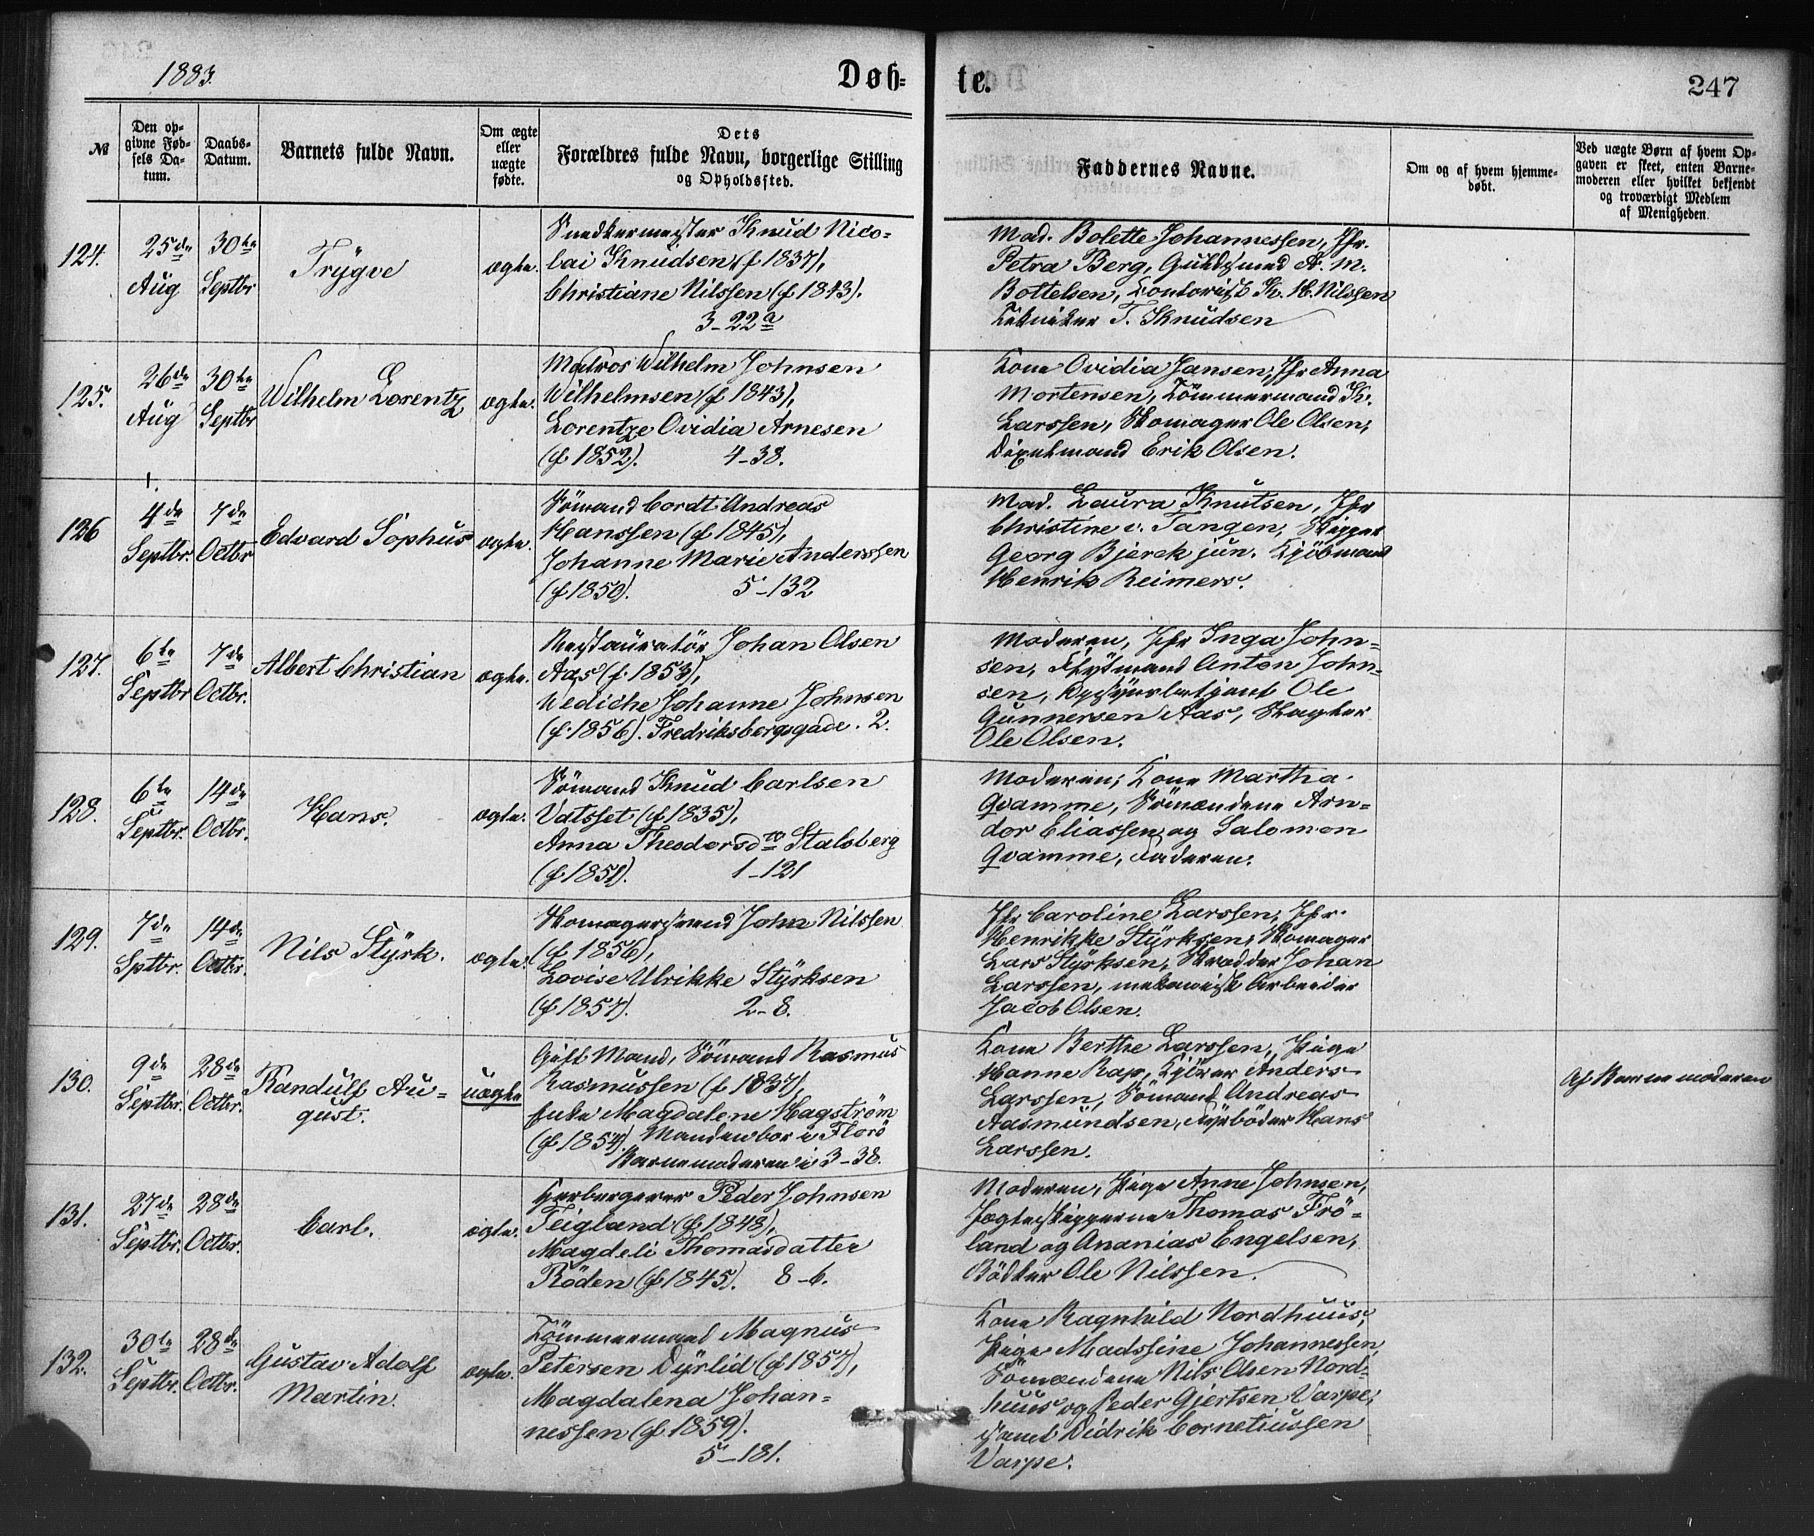 1883.
Døb-
te.
247
№
Den op-
givne Fød-
sels Da-
tum.
Daabs-
Datum.
Barnets fulde Navn.
Om ægte
eller
uægte
fødte.
Dets
Forældres fulde Navn, borgerlige Stilling
og Opholdssted.
Faddernes Navne.
Om og af hvem hjemme-
døbt.
Ved uægte Børn af hvem Op-
gaven er skeet, enten Barne-
moderen eller hvilket bekjendt
og troværdigt Medlem
af Menigheden.
124.
25de
Aug
30te
Septbr
Trygve
ægte.
Snedkermester Knud Nico-
lai Knudsen (f 1837),
Christiane Nilssen (f 1843).
3-22a
Mad. Bolette Johannessen, Jfr.
Petra Berg, Guldsmed A. M.
Bottelsen, Kontorist K. H. Nilssen
Tekniker T. Knudsen
125.
26de
Aug
30te
Septbr
Wilhelm Lorentz
ægte.
Matros Wilhelm Johnsen
Wilhelmsen (f 1843),
Lorentze Ovidia Arnesen
(f 1852). 4-38.
Kone Ovidia Jansen, Jfr Anna
Mortensen, Tömmermand K.
Larssen, Skomager Ole Olsen,
Dixelmand Erik Olsen.
126
4de
Septbr.
7de
Octbr
Edvard Sophus
ægte.
Sömand Cordt Andreas
Hanssen (f 1845),
Johanne Marie Anderssen
(f 1850). 5-132
Mad. Laura Knutsen, Jfr
Christine v. Tangen, Skipper
Georg Bjerck jun. Kjöbmand
Henrik Reimers.
127.
6te
Septbr
7de
Octbr.
Albert Christian
ægte.
Restauratör Johan Olsen
Aas (f. 1853),
Wediche Johanne Johnsen
(f. 1856). Fredriksbergsgade. 2.
Moderen, Jfr Inga John-
sen, Flytmand Anton John-
sen, Opsynsbetjent Ole
Gunnersen Aas, Slagter
Ole Olsen.
128.
6te
Septbr.
14de
Octbr.
Hans.
ægte.
Sömand Knud Carlsen
Vatsset (f 1835),
Anna Theodorsdtr Stalsberg
(f 1851). 1-121
Moderen, Kone Martha
Qvamme, Sömændene Arn-
dor Eliassen og Salomon
Qvamme, Faderen.
129.
7de
Sptbr.
14de
Octbr.
Nils Styrk.
ægte.
Skomagersvend John Nilssen
(f 1856),
Lovise Ulrikke Styrksen
(f 1857). 2-8.
Jfr Caroline Larssen, Jfr.
Henrikke Styrksen, Skomager
Lars Styrksen, Skrædder Johan
Larssen, mekanisk Arbeider
Jacob Olsen.
130.
9de
Septbr.
28de
Octbr.
Randulf Au-
gust.
uægte
Gift Mand, Sömand Rasmus
Rasmussen (f 1837),
Enke Magdalene Hagström
(f 1854). Manden bor i Florö
Barnemoderen i 3-38.
Kone Berthe Larssen, Pige
Hanne Rap, Kjörer Anders
Larssen, Sömand Andreas
Aasmundsen, Fyrböder Hans
Larssen.
Af Barnemoderen
131.
27de
Septbr.
28de
Octbr.
Carl.
ægte.
Herbergerer Peder Johnsen
Teigland (f 1848),
Magdeli Thomasdatter
Röden (f 1845). 8-6.
Moderen, Pige Anne Johnsen,
Jægteskipperne Thomas Frö-
land og Ananias Engelsen,
Bödker Ole Nilssen.
132.
30te
Septbr.
28de
Octbr.
Gustav Adolf
Martin.
ægte.
Tömmermand Magnus
Petersen Dyrlid (f 1857),
Magdalena Johan-
nessen (f 1859).
5-181.
Kone Ragnhild Nordhuus,
Pige Madssine Johannessen,
Sömændene Nils Olsen Nord-
huus og Peder Gjertsen Varpe,
samt Didrik Corneliussen
Varpe.